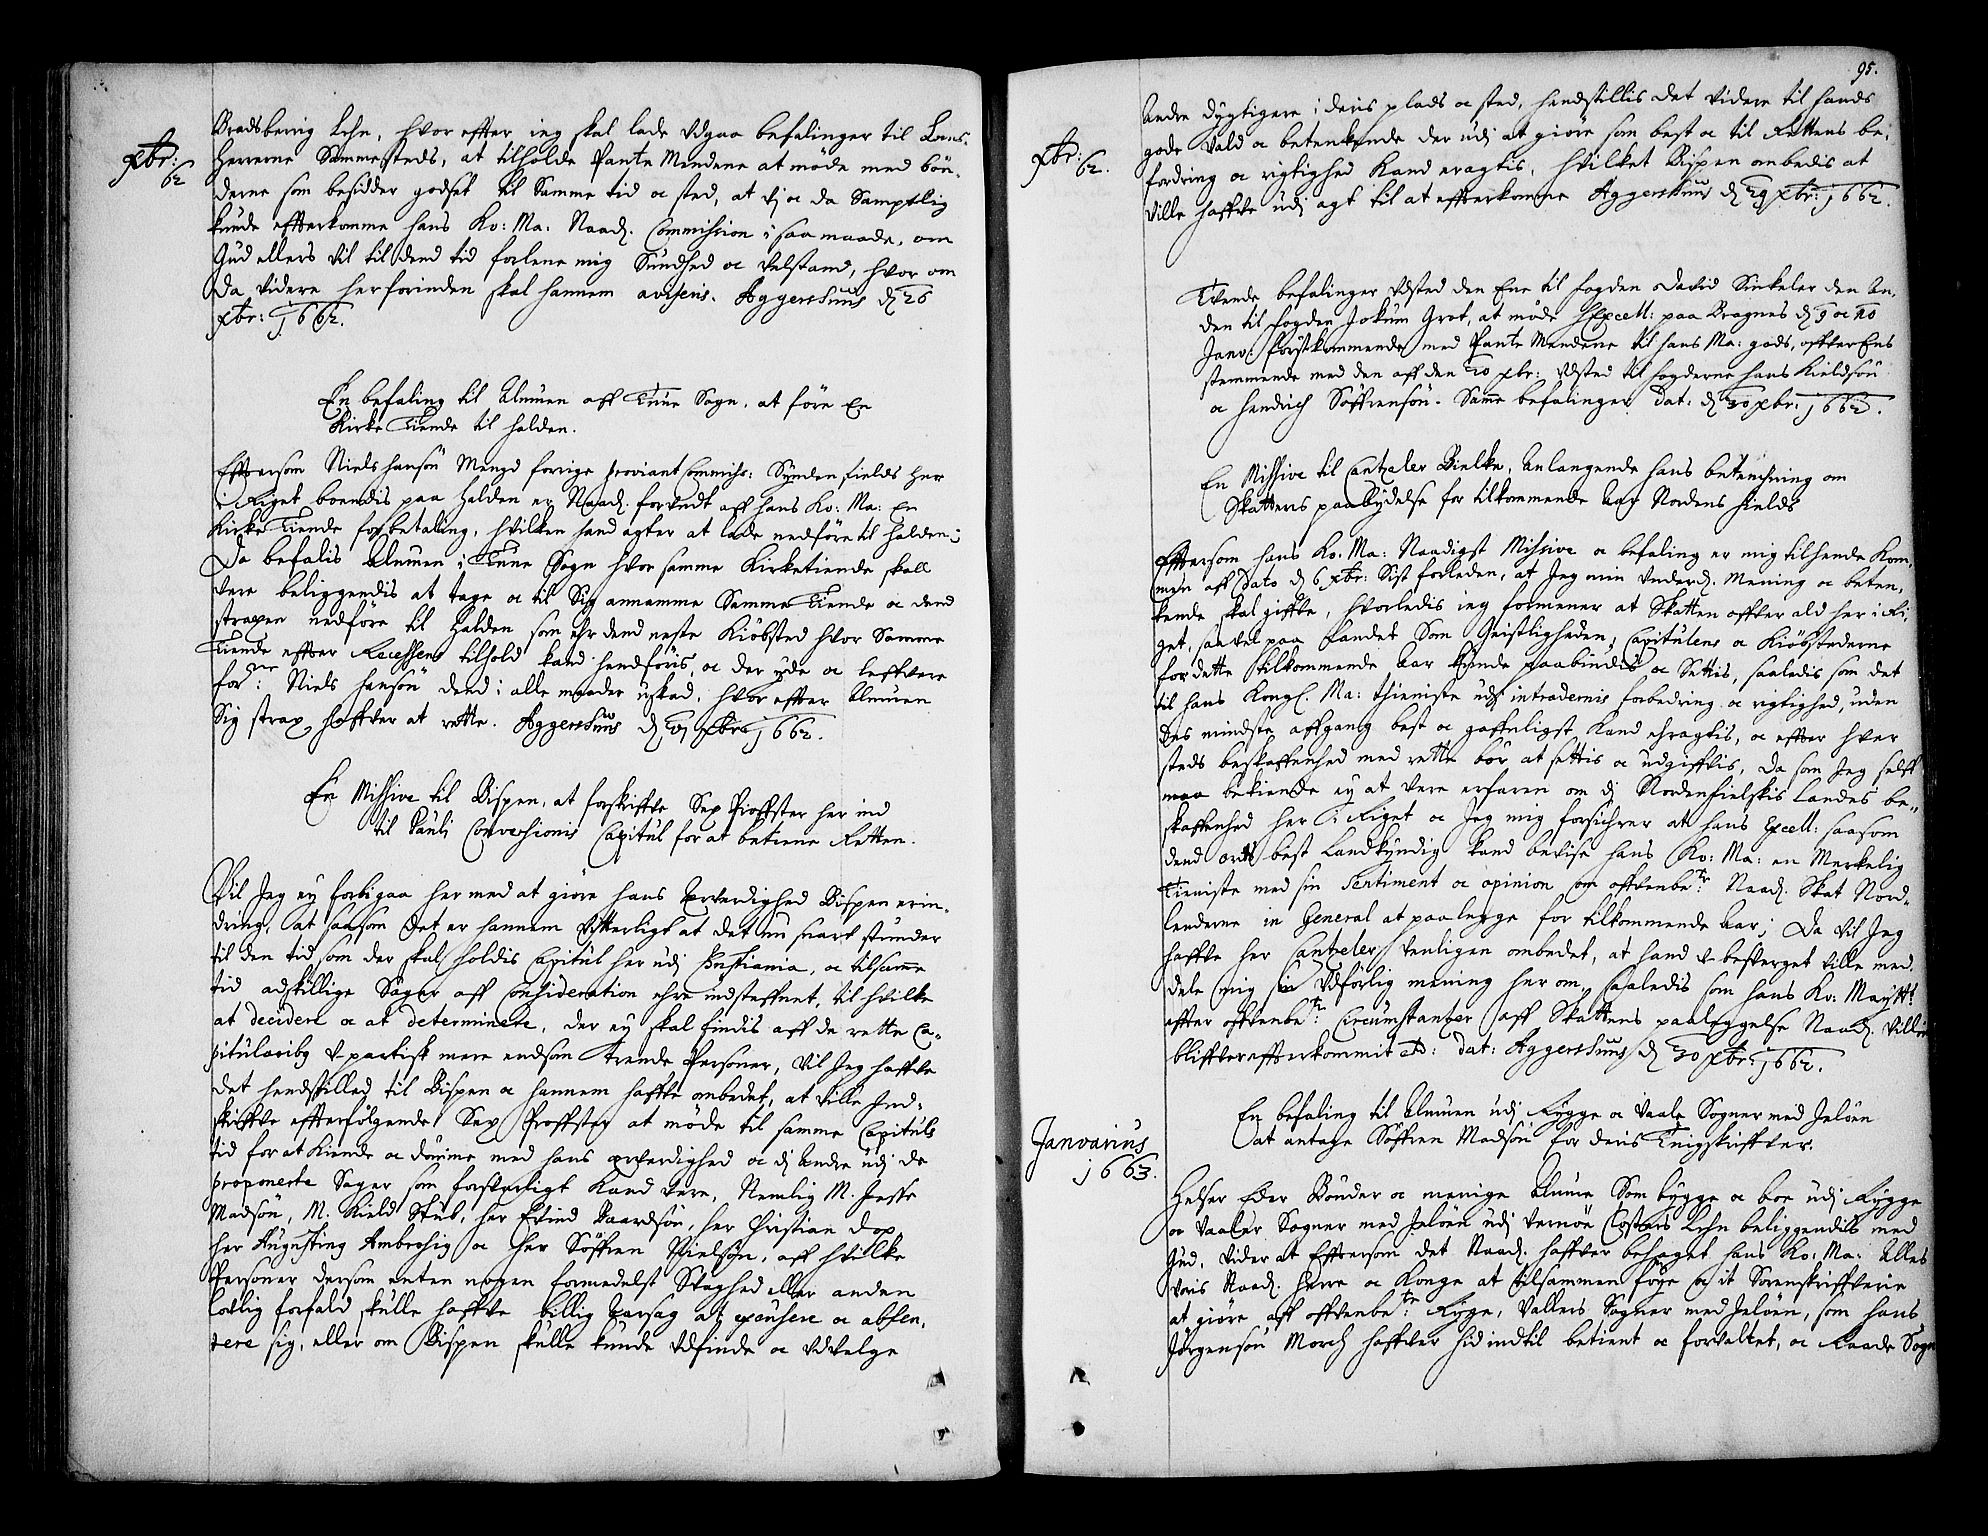 xbr:
62
Bradsberrig Lehn, hvor effter ieg skal lade Udgaa befalinger til Lens¬
Herrerne Sammesteds, at tilholde Pante Mendene at möde med bön¬
derne som besidder godset til Samme tid oc sted, at vj oc da Samptlig
kunde effterkomme hans Ko: Ma: Naad. Commission i saa maade, om
Gud ellers vil til dend tid forlene mig Sundhed oc velstand, hvor om
da videre herforinden skal hannem aviseris. Aggershuus d. 26
xbr: 1662.
En befaling til Almuen aff Tune Sogn, at före En
Kirke Tiende til Halden.
Effttersom Niels Hansön Mengd forrige proviant Commiss: Synden fields her
i Riget boendis paa Halden er Naad. forundt aff hans Ko: Ma: En
Kirke Tiende for betaling, hvilken hand agter at lade nedföre til Halden;
Da befalis Almuen i Tune Sogn hvor samme Kirketiende skall
vere beliggendis at tage oc til Sig annamme Samme Tiende oc dend
straxen nedföre til Halden som ehr dend neste Kiöbsted hvor Samme
Tiende effter Recessens tilhold kand henföris, oc der yde oc leffvere
for:ne Niels Hansön dend i alle maader uskad. Hvor effter Almuen
Sig strax haffver at rette. Aggershuus d. xbr: 1662.
En Missive til Bispen, at forskriffve Sex Proffster her ind
til Pauli Conversionis Capitul for at betiene Retten.
Vil Jeg ey forbigaa her med at giöre hans Ærverdighed Bispen erin¬
dring, at saasom det er hannem Vitterligt at det nu snart stunder
til den tid som der skal holdis Capitul her udj Christiania, oc tilsamme
tid adskillige Sager aff Consideration ehre indsteffnet, til hvilke
at decidere oc at determinere, der ey skal findis aff de rette Ca¬
pitularibg u-partisk mere endsom trende Personer, vil Jeg haffve
det hendstilled til Bispen oc hannem haffve ombedet, at ville Ind¬
skriffve effterfölgende Sex Proffster at möde til samme Capituls
tid for at Kiende oc dömme med hans ærverdighed oc dj Andre udj de
proponerte Sager som forsvarligt kand vere, Nemlig M. Jesse
Madsön, M. Kield Stub, her Evind Baardsön, her Christian Dop
her Augusting Ambrosig oc her Söffren Nielsön, aff hvilke
Personer dersom enten nogen formedelst Svaghed eller anden
lovlig forfald skulle haffve billig Aarsag at excusere oc absen¬
tere sig, eller om Bispen skulle kunde Udfinde oc Udvelge
95.
xbr:
62.
Andre dygtigere i deris plads oc sted, hendstillis det videre til hands
gode vold oc betenkende der udj at giöre som best oc til Rettens be¬
fordring oc rigtighed kand eragtis, hvilket Bispen ombedis at
ville haffve udj agt til at effterkomme Aggershuus d. 29 xbr: 1662.
Tvende befalinger Udsted den Ene til fogden David Sinkeler den An¬
den til fogden Jokum Grot, at möde H Excell: paa Bragnes d. 9 oc 10
Janv: förstkommende med Pante Mendene til hans Ma: gods, offverEns
stemmende med den aff den 20 xbr: Udsted til fogderne Hans Kieldsön
oc Hendrich Söffrensön. Samme befalinger Dat: d. 30 xbr: 1662.
En Missive til Cantzeler Bielke, Anlangende hans betenckning om
Skattens paabydelse for tilkommende Aar Nordens fields
Efftersom hans Ko: Ma: Naadigst Missive oc befaling er mig tilhende Kom¬
men aff Dato d. 6 xbr: Sist forleden, at Jeg min underd. Mening oc beten¬
kende skal giffve, hvorledis ieg formener at Skatten offver ald her i Ri¬
get, saavel paa Landet Som Geistligheden, Capitulens oc Kiöbstederne
for dette tilkommende Aar kunde paabiudis oc Settis, saaledis som det
til hans Kongl. Ma: thieniste udj intradernis forbedring oc rigtighed, uden
des mindste affgang best oc gaffnligst kand ehragtis, oc effter hver
steds beskaffenhed med rette bör at settis oc udgiffvis, Da som Jeg selff
maa bekiende ey at vere erfaren om dj Nordenfielskis Landes be¬
skaffenhed her i Riget oc Jeg mig forsickrer at hans Excell: saasom
dend best Landkyndig kand bevise hans Ko: Ma: en Merkelig
Tieniste med sin Sentiment oc opinion om offvenbe:te Naad. Skat Nord¬
lenderne in General at paalegge for tilkommende Aar; Da vil Jeg
haffve her Cantzeler venligen ombedet, at hand u-besverget ville med
dele mig sin Udförlig mening her om, saaledis som hans Ko: Maytt:
effter offvenbe:te Circumstantzer aff Skattens paaleggelse Naad. Villie
bliffver effterkommit etc: Dat: Aggershuus d. 30 xbr: 1662.
Janvarius
1663.
En befaling til Almuen udj Rygge oc Vaale Sogner med Jelöen
at antage Söffren Madsön for deris Tingskriffver.
Helser Eder Bönder oc menige Almue Som bygge oc boe udj Rygge
oc Vaaler Sogner med Jelöen udj Vernöe Closters Lehn beliggendis med
Gud. Vider at Efftersom det Naad. haffver behaget hans Ko: Ma: Alles
voris Naad. Herre oc Konge at tilsammen föye oc it Sorenskriffverie
at giöre aff offvenbe:te Rygge, Vallers Sogner med Jelöen, som Hans
Jörgensön Morch haffver hid indtil betient oc forvaltet, oc Raade Sogn